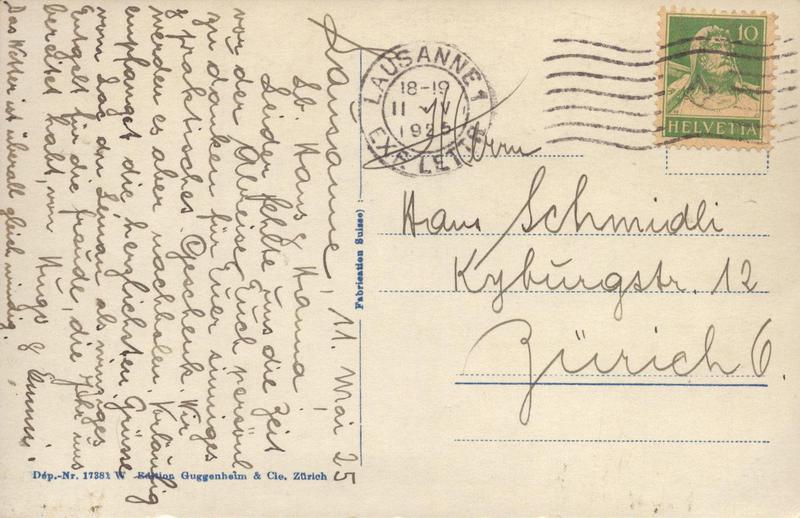 Lausanne, 11. Mai 25
Lb. Hans & Hanna!
Leider fehlte uns die Zeit
vor der Abreise Euch persönl.
zu danken für Euer sinniges
& praktisches Geschenk. Wir
werden es aber nachholen. Vorläufig
empfanget die herzlichsten Grüsse
vom Lac du Léman als winziges
Entgelt für die Freude, die Ihr uns
bereitet habt, von Hugo & Emmi.
Das Wetter ist überall gleich windig.
LAUSANNE 1
18-19
11 V
1925
EXP. LETTR.
10
HELVETIA
Herrn
Hans Schmidli
Kyburgstr. 12
Zürich 6.
Fabrication Suisse
Dép.-Nr. 17381 W Edition Guggenheim & Cie, Zürich